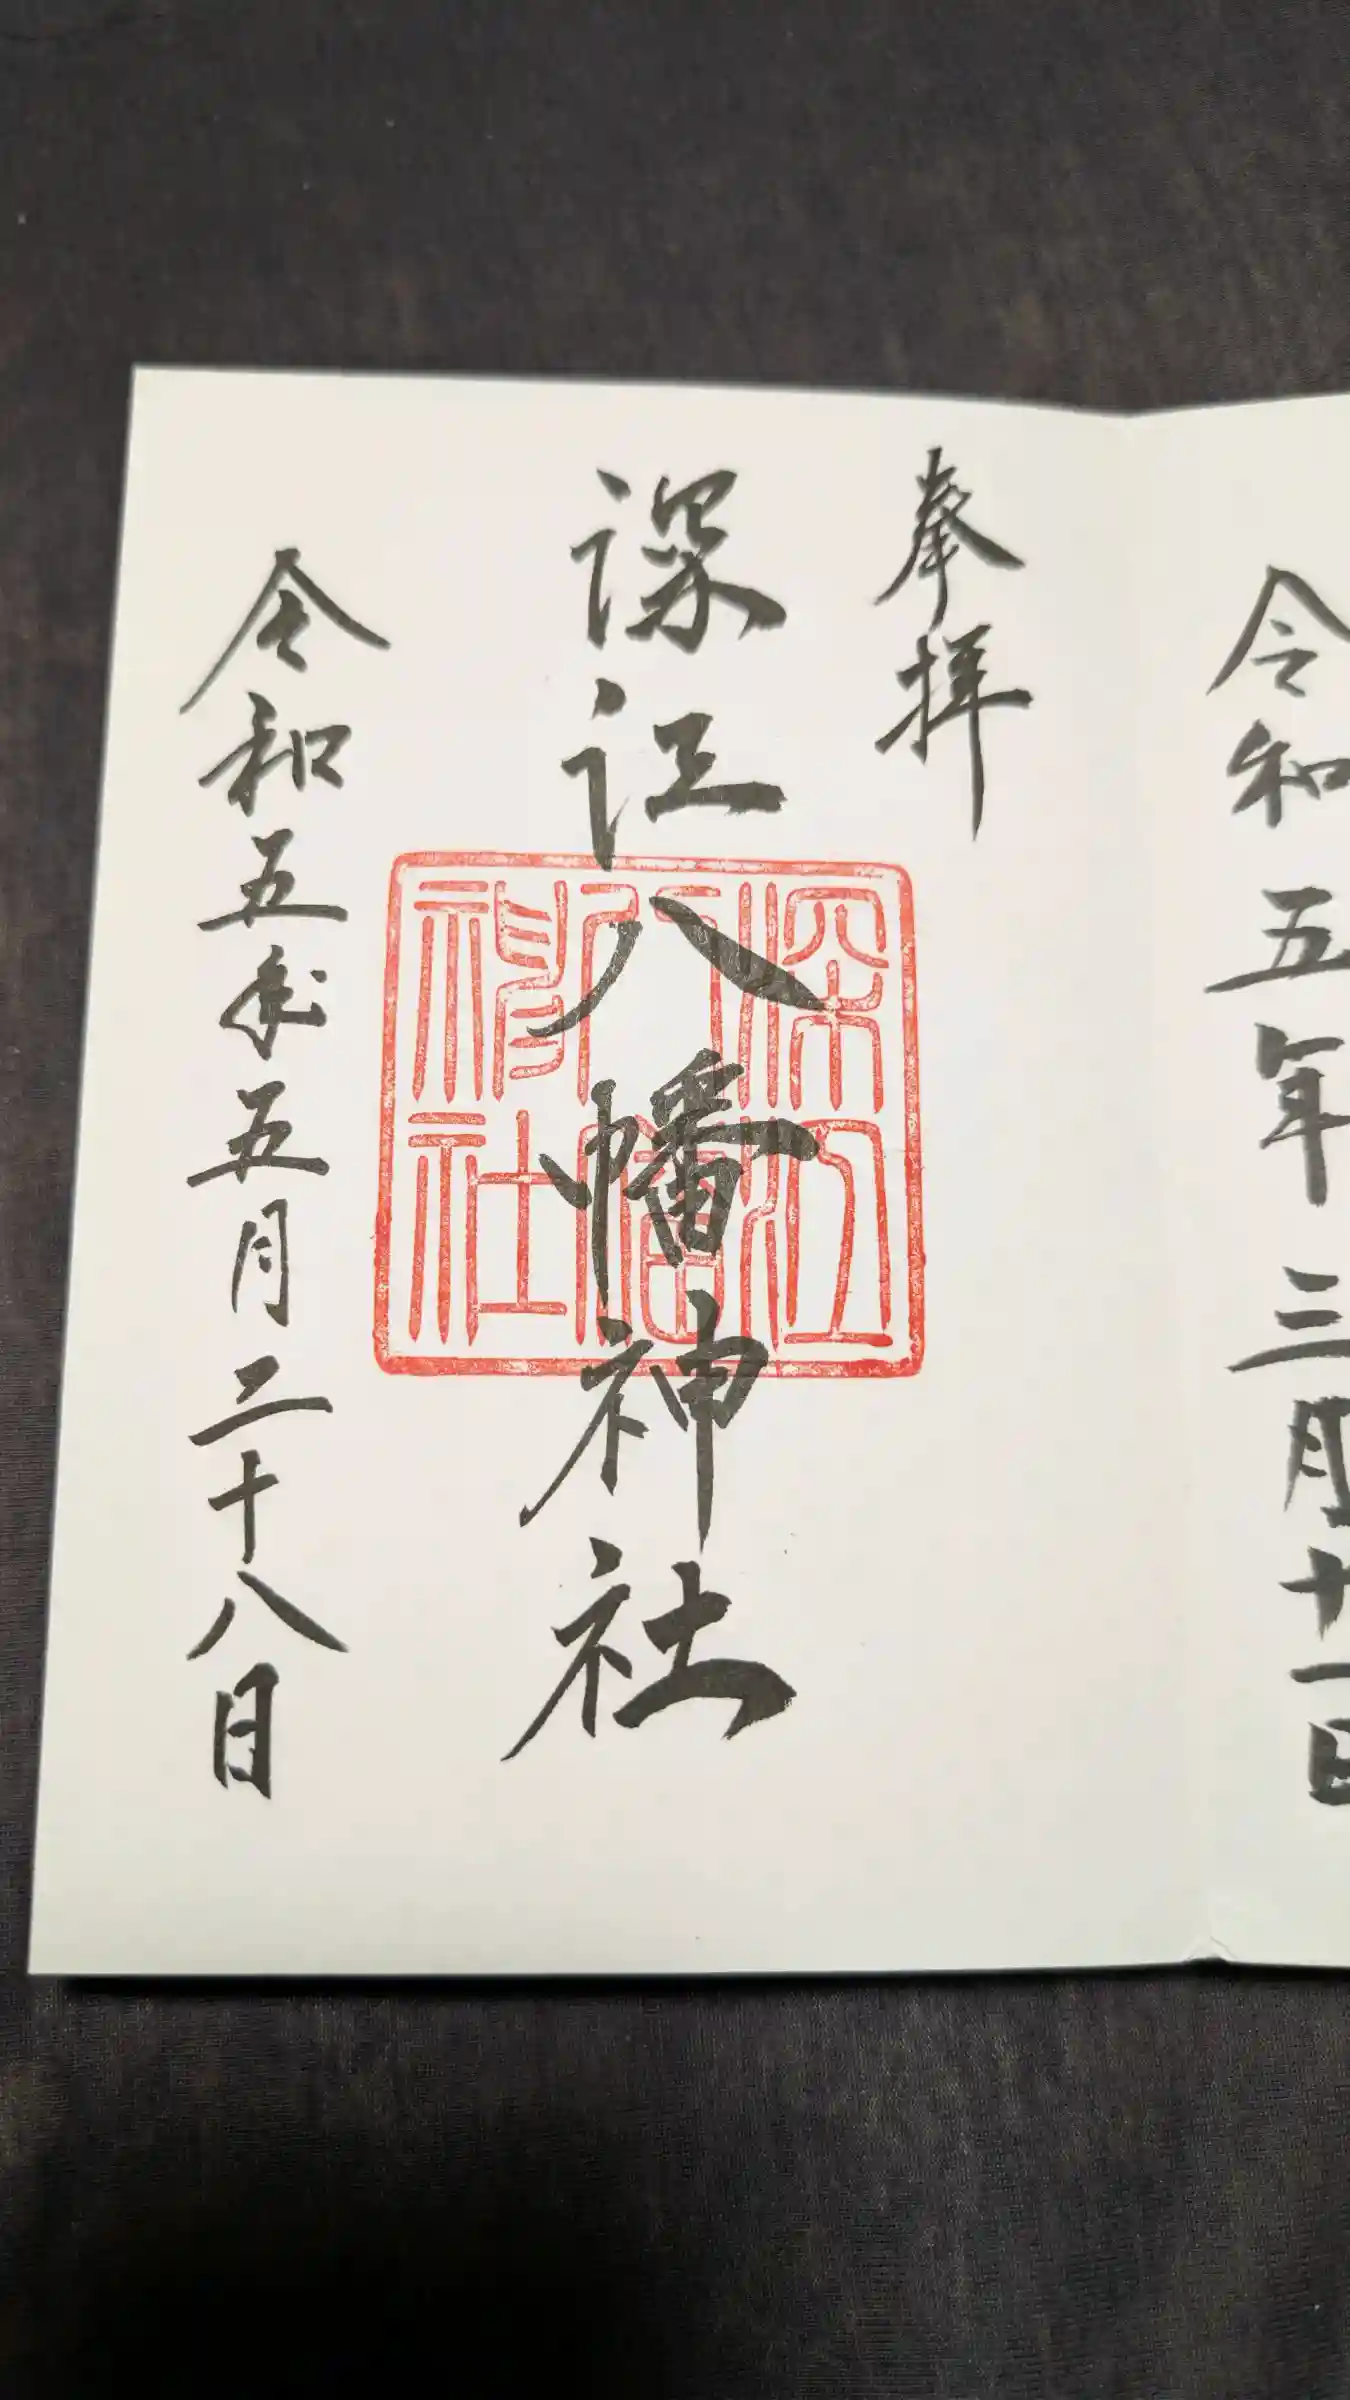 令和五年三月廿一日
奉拝
深江八幡神社
深江
八幡
神社
令和五年五月二十八日